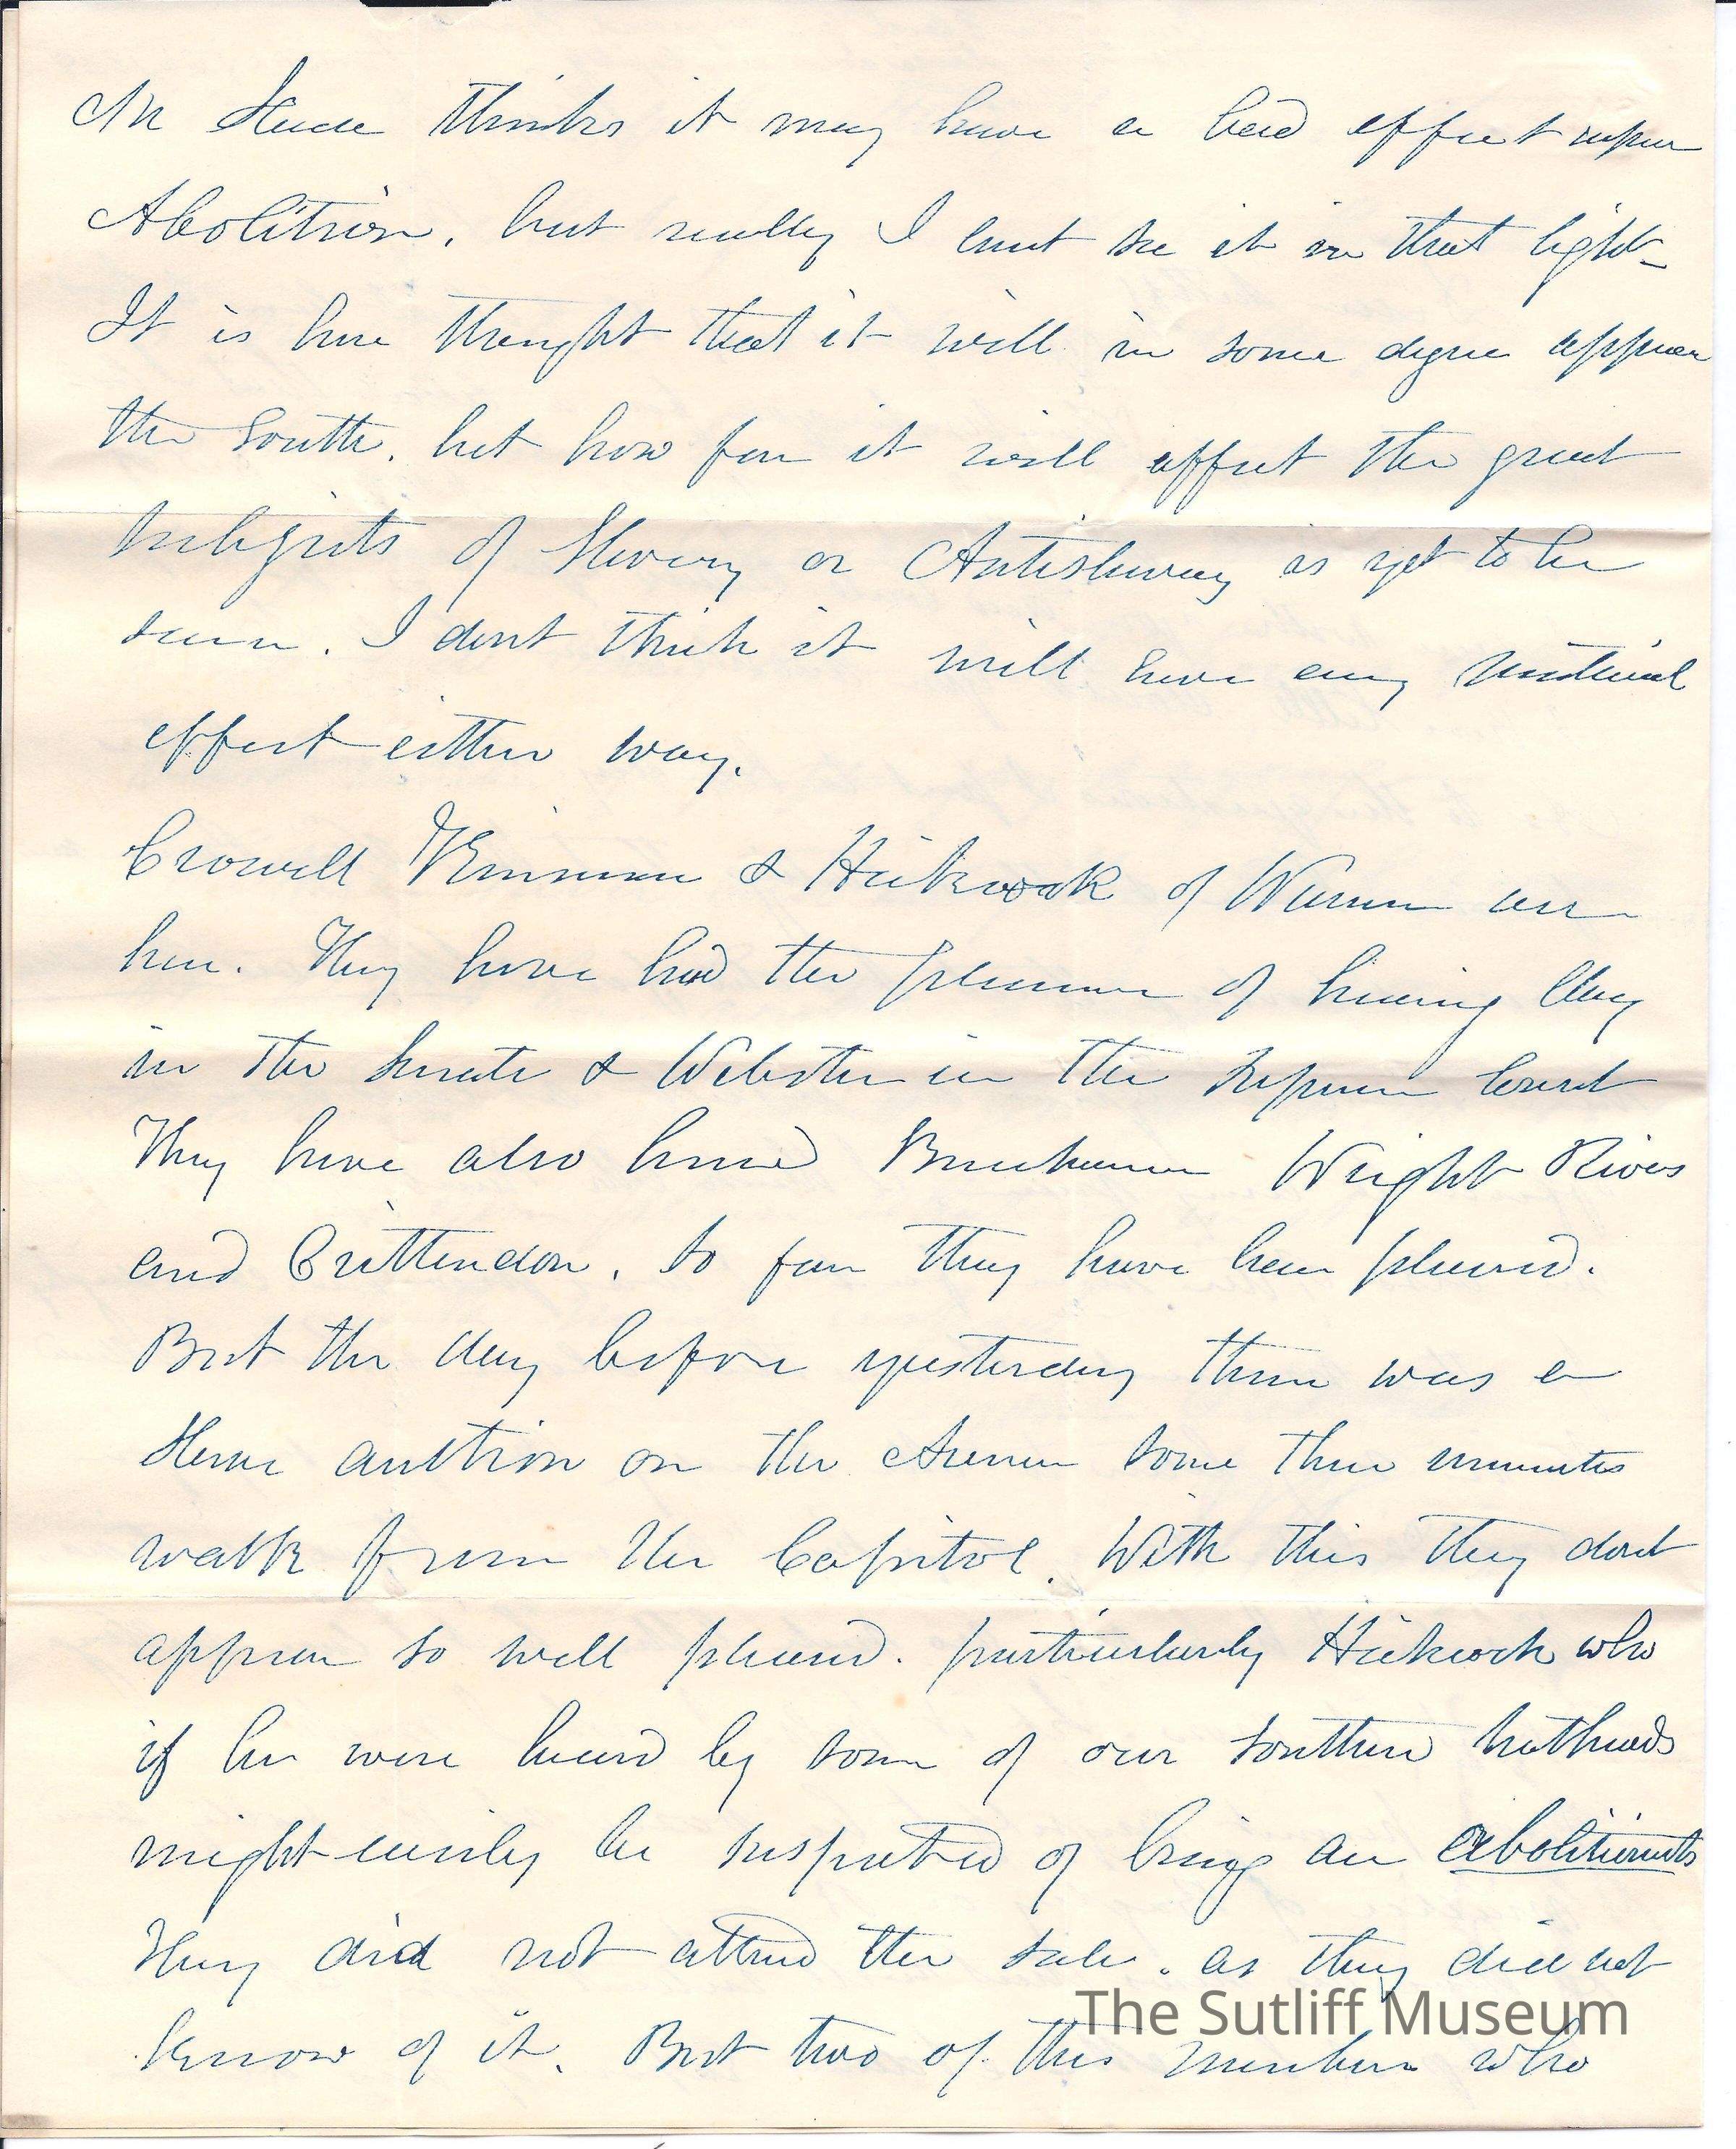 Mr Slade thinks it may have a bad effect upon
Abolition, but really I cant see it in that light_
It is here thought that it will in some degree appear
the South. but how far it will affect the great
subjects of Slavery or Antislavery is yet to be
seen. I dont think it will have any material
effect either way.
Crowell Kinsman & Hickcock of Warren are
here. They have had the pleasure of hearing Clay
in the Senate & Webster in the Supreme Court
They have also heard Buchanan Wright Rives
and Crittendon. So far they have been pleased.
But the day before yesterday there was a
Slave auction on the Avenue some three minutes
walk from the Capitol. With this they dont
appear so well pleased. particularly Hickcock who
if he were heard by some of our southern hotheads
might easily be suspected of being an abolitionists
They did not attend the sale. as they did not
know of it. But two of the members who
The Sutliff Museum